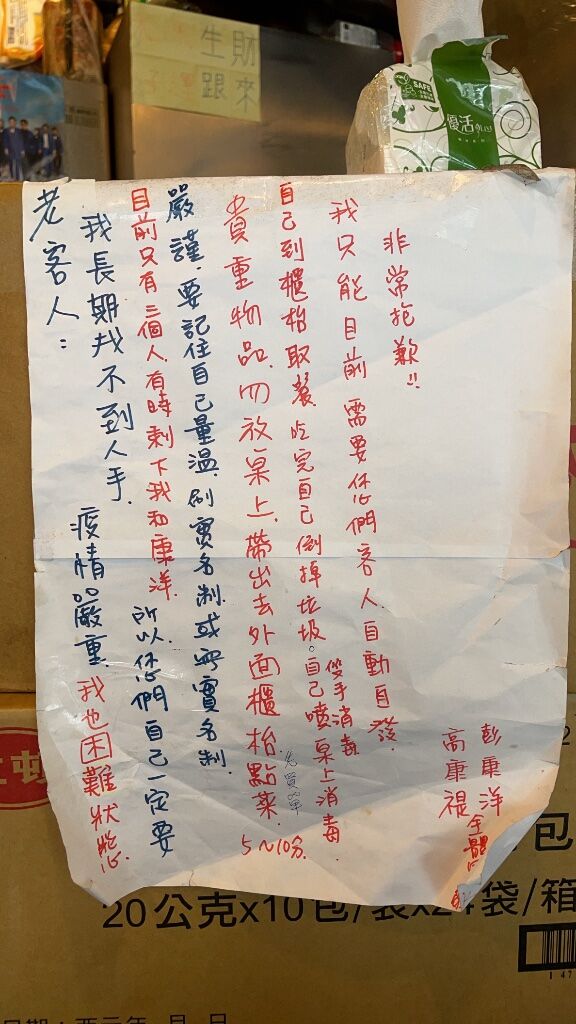 財來
生跟
SAFE
優活
老客人：
我長期找不到人手.疫情嚴重.我也困難狀態.
目前只有三個人.有時剩下我和康洋.所以你們自己一定要
嚴謹.要記住自己量溫.刷實名制或寫實名制.
貴重物品.勿放桌上.帶出去外面櫃枱點菜.5~10分.
先買單
自己到櫃枱取餐.吃完自己倒掉垃圾。自己噴桌上消毒.
雙手消毒
我只能目前需要你們客人自動自發.
非常抱歉!!
彭康洋
高康禔
全體
20公克x10包/袋x24袋/箱
包